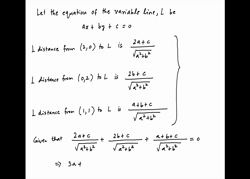 Let the equation of the variable line, L be
ax + by + c = 0
⊥ distance from (2,0) to L is (2a+c)/√(a²+b²)
⊥ distance from (0,2) to L is (2b+c)/√(a²+b²)
⊥ distance from (1,1) to L is (a+b+c)/√(a²+b²)
Given that (2a+c)/√(a²+b²) + (2b+c)/√(a²+b²) + (a+b+c)/√(a²+b²) = 0
⇒ 3a +